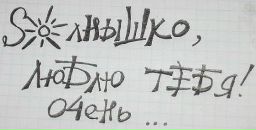 Солнышко,
люблю тебя!
очень ...